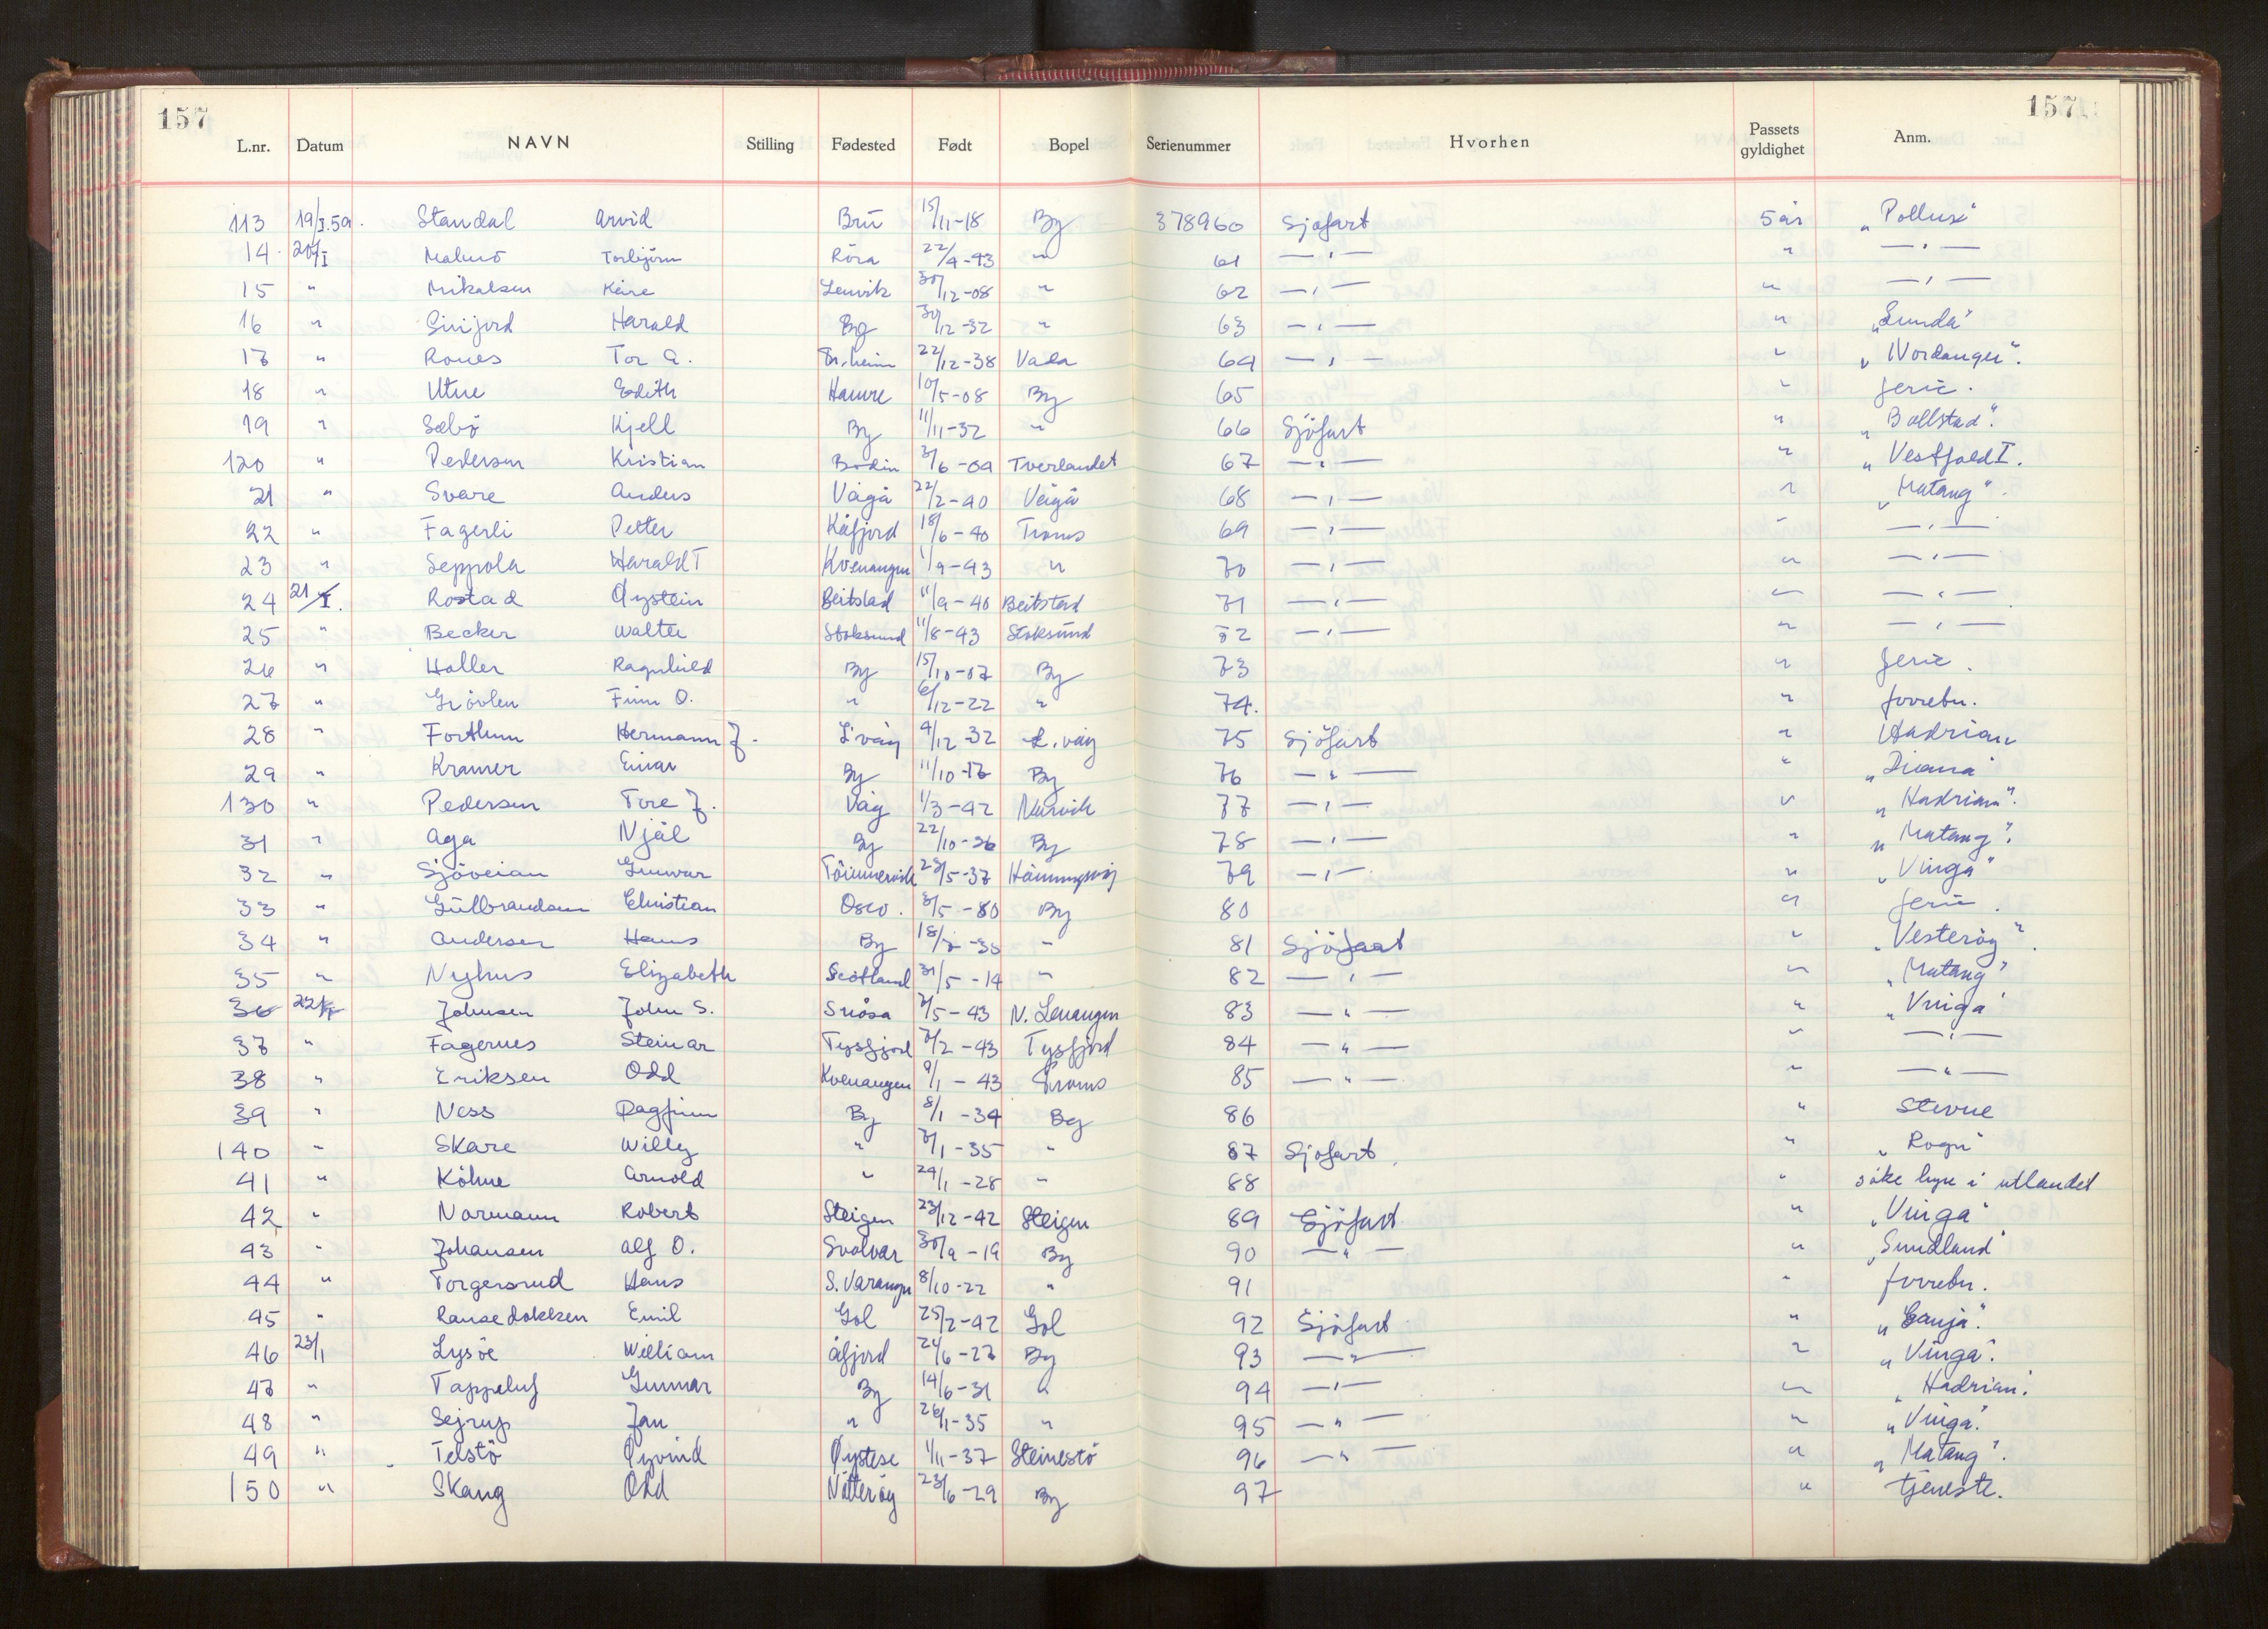 157 157
L.nr. Datum NAVN Stilling Fødested Født Bopel Serienummer Hvorhen Passets gyldighet Anm.
113 19/I.59. Standal Arvid Bru 15/11-18 By 378960 Sjøfart 5 år "Pollux"
14 20/I Malmö Torbjörn Röra 22/4-43 " 61 —"— " —"—
15 " Mikalsen Kåre Lenvik 30/12-08 " 62 —"— " —"—
16 " Sivijord Harald By 30/12-32 " 63 —"— " "Sunda"
17 " Rones Tor A. Tr.heim 22/12-38 Vada 64 —"— " "Nordanger".
18 " Utne Edith Hamre 10/5-08 By 65 " ferie.
19 " Sælö Kjell By 11/11-32 " 66 Sjöfart " "Bollstad".
120 " Pedersen Kristian Bodin 3/6-09 Tverlandet 67 —"— " "Vestfold I.
21 " Svare Anders Vågå 22/2-40 Vågå 68 —"— " "Matang".
22 " Fagerli Petter Kåfjord 18/6-40 Troms 69 —"— " —"—
23 " Seppola Harald T Kvenangen 1/9-43 " 70 —"— " —"—
24 21/I. Rostad Øystein Beitstad 11/9-40 Beitstad 71 —"— " —"—
25 " Becker Walter Stoksund 11/8-43 Stoksund 72 —"— " —"—
26 " Haller Ragnhild By 15/10-07 By 73 " ferie.
27 " Grövlen Finn O. " 6/12-22 " 74. " forretn.
28 " Forthun Hermann J. L'våg 4/12-32 L.våg 75 Sjöfart " Hadrian
29 " Kramer Einar By 11/10-17 By 76 —"— " "Diana"
130 " Pedersen Tore J. Våg 1/3-42 Narvik 77 —"— " "Hadrian".
31 " Aga Njål By 22/10-26 By 78 —"— " "Matang".
32 " Sjöveian Gunvar Töimmervik 23/5-37 Hönningsvåg 79 —"— " "Vinga"
33 " Gulbrandsen Christian Oslo. 3/5-80 By 80 " ferie.
34 " Andersen Hans By 18/7-35 " 81 Sjöfart " "Vesteröy".
35 " Nyhus Elizabeth Scotland 31/5-14 " 82 —"— " "Matang"
36 22/I Johnsen John S. Snåsa 2/5-43 N. Lenangen 83 —"— " "Vinga"
37 " Fagernes Steinar Tysfjord 7/2-43 Tysfjord 84 —"— " —"—
38 " Eriksen Odd Kvenangen 9/1-43 Troms 85 —"— " —"—
39 " Ness Dagfinn By 8/1-34 By 86 " stevne
140 " Skare Willy " 7/1-35 " 87 Sjøfart. " "Rogn"
41 " Köhne Arnold " 24/1-28 " 88 " søke hyre i utlandet
42 " Normann Robert Steigen 23/12-42 Steigen 89 Sjöfart " "Vinga"
43 " Johansen Alf O. Svolvær 30/9-19 By 90 —"— " "Sundland"
44 " Torgersrud Hans S. Varanger 8/10-22 " 91 " forretn.
45 " Ransedokken Emil Gol 25/2-42 Gol 92 Sjöfart " "Ganja".
46 23/1 Lysöe William Åfjord 24/6-27 By 93 —"— " "Vinga".
47 " Tappeluf Gunnar By 14/6-31 " 94 —"— " "Hadrian".
48 " Sejrup Jan " 26/1-35 " 95 —"— " "Vinga".
49 " Telstö Øyvind Øystese 1/11-37 Steinestö 96 —"— " "Matang".
150 " Skang Odd Nötteröy 23/6-29 By 97 " tjeneste.